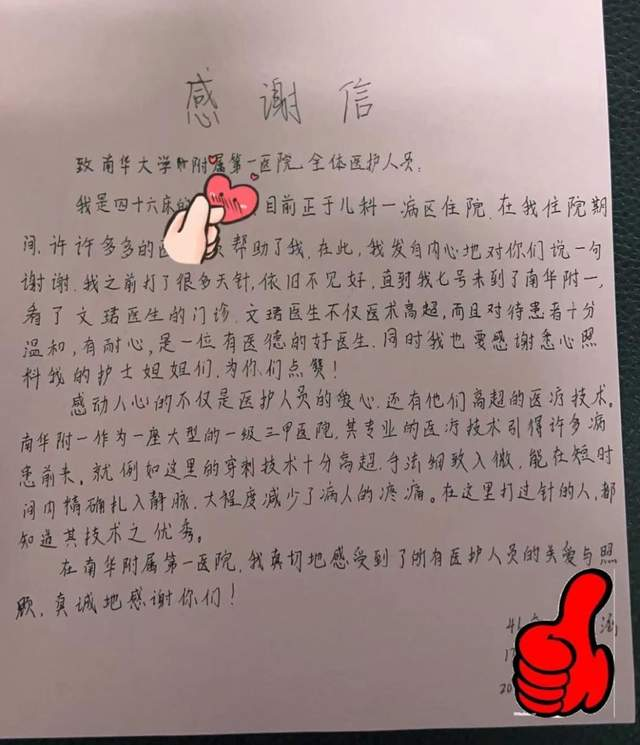 感谢信
致南华大学附属第一医院全体医护人员:
我是四十六床的 目前正于儿科一病区住院.在我住院期
间,许许多多的医 帮助了我.在此,我发自内心地对你们说一句
谢谢.我之前打了很多天针,依旧不见好,直到我七号来到了南华附一,
看了文珺医生的门诊.文珺医生不仅医术高超,而且对待患者十分
温和,有耐心,是一位有医德的好医生.同时我也要感谢悉心照
料我的护士姐姐们.为你们点赞!
感动人心的不仅是医护人员的爱心.还有他们高超的医疗技术。
南华附一作为一座大型的一级三甲医院,其专业的医疗技术引得许多病
患前来。就例如这里的穿刺技术十分高超.手法细致入微,能在短时
间内精确扎入静脉.大程度减少了病人的疼痛。在这里打过针的人,都
知道其技术之优秀。
在南华附属第一医院,我真切地感受到了所有医护人员的关爱与照
顾.真诚地感谢你们!
41
1
20